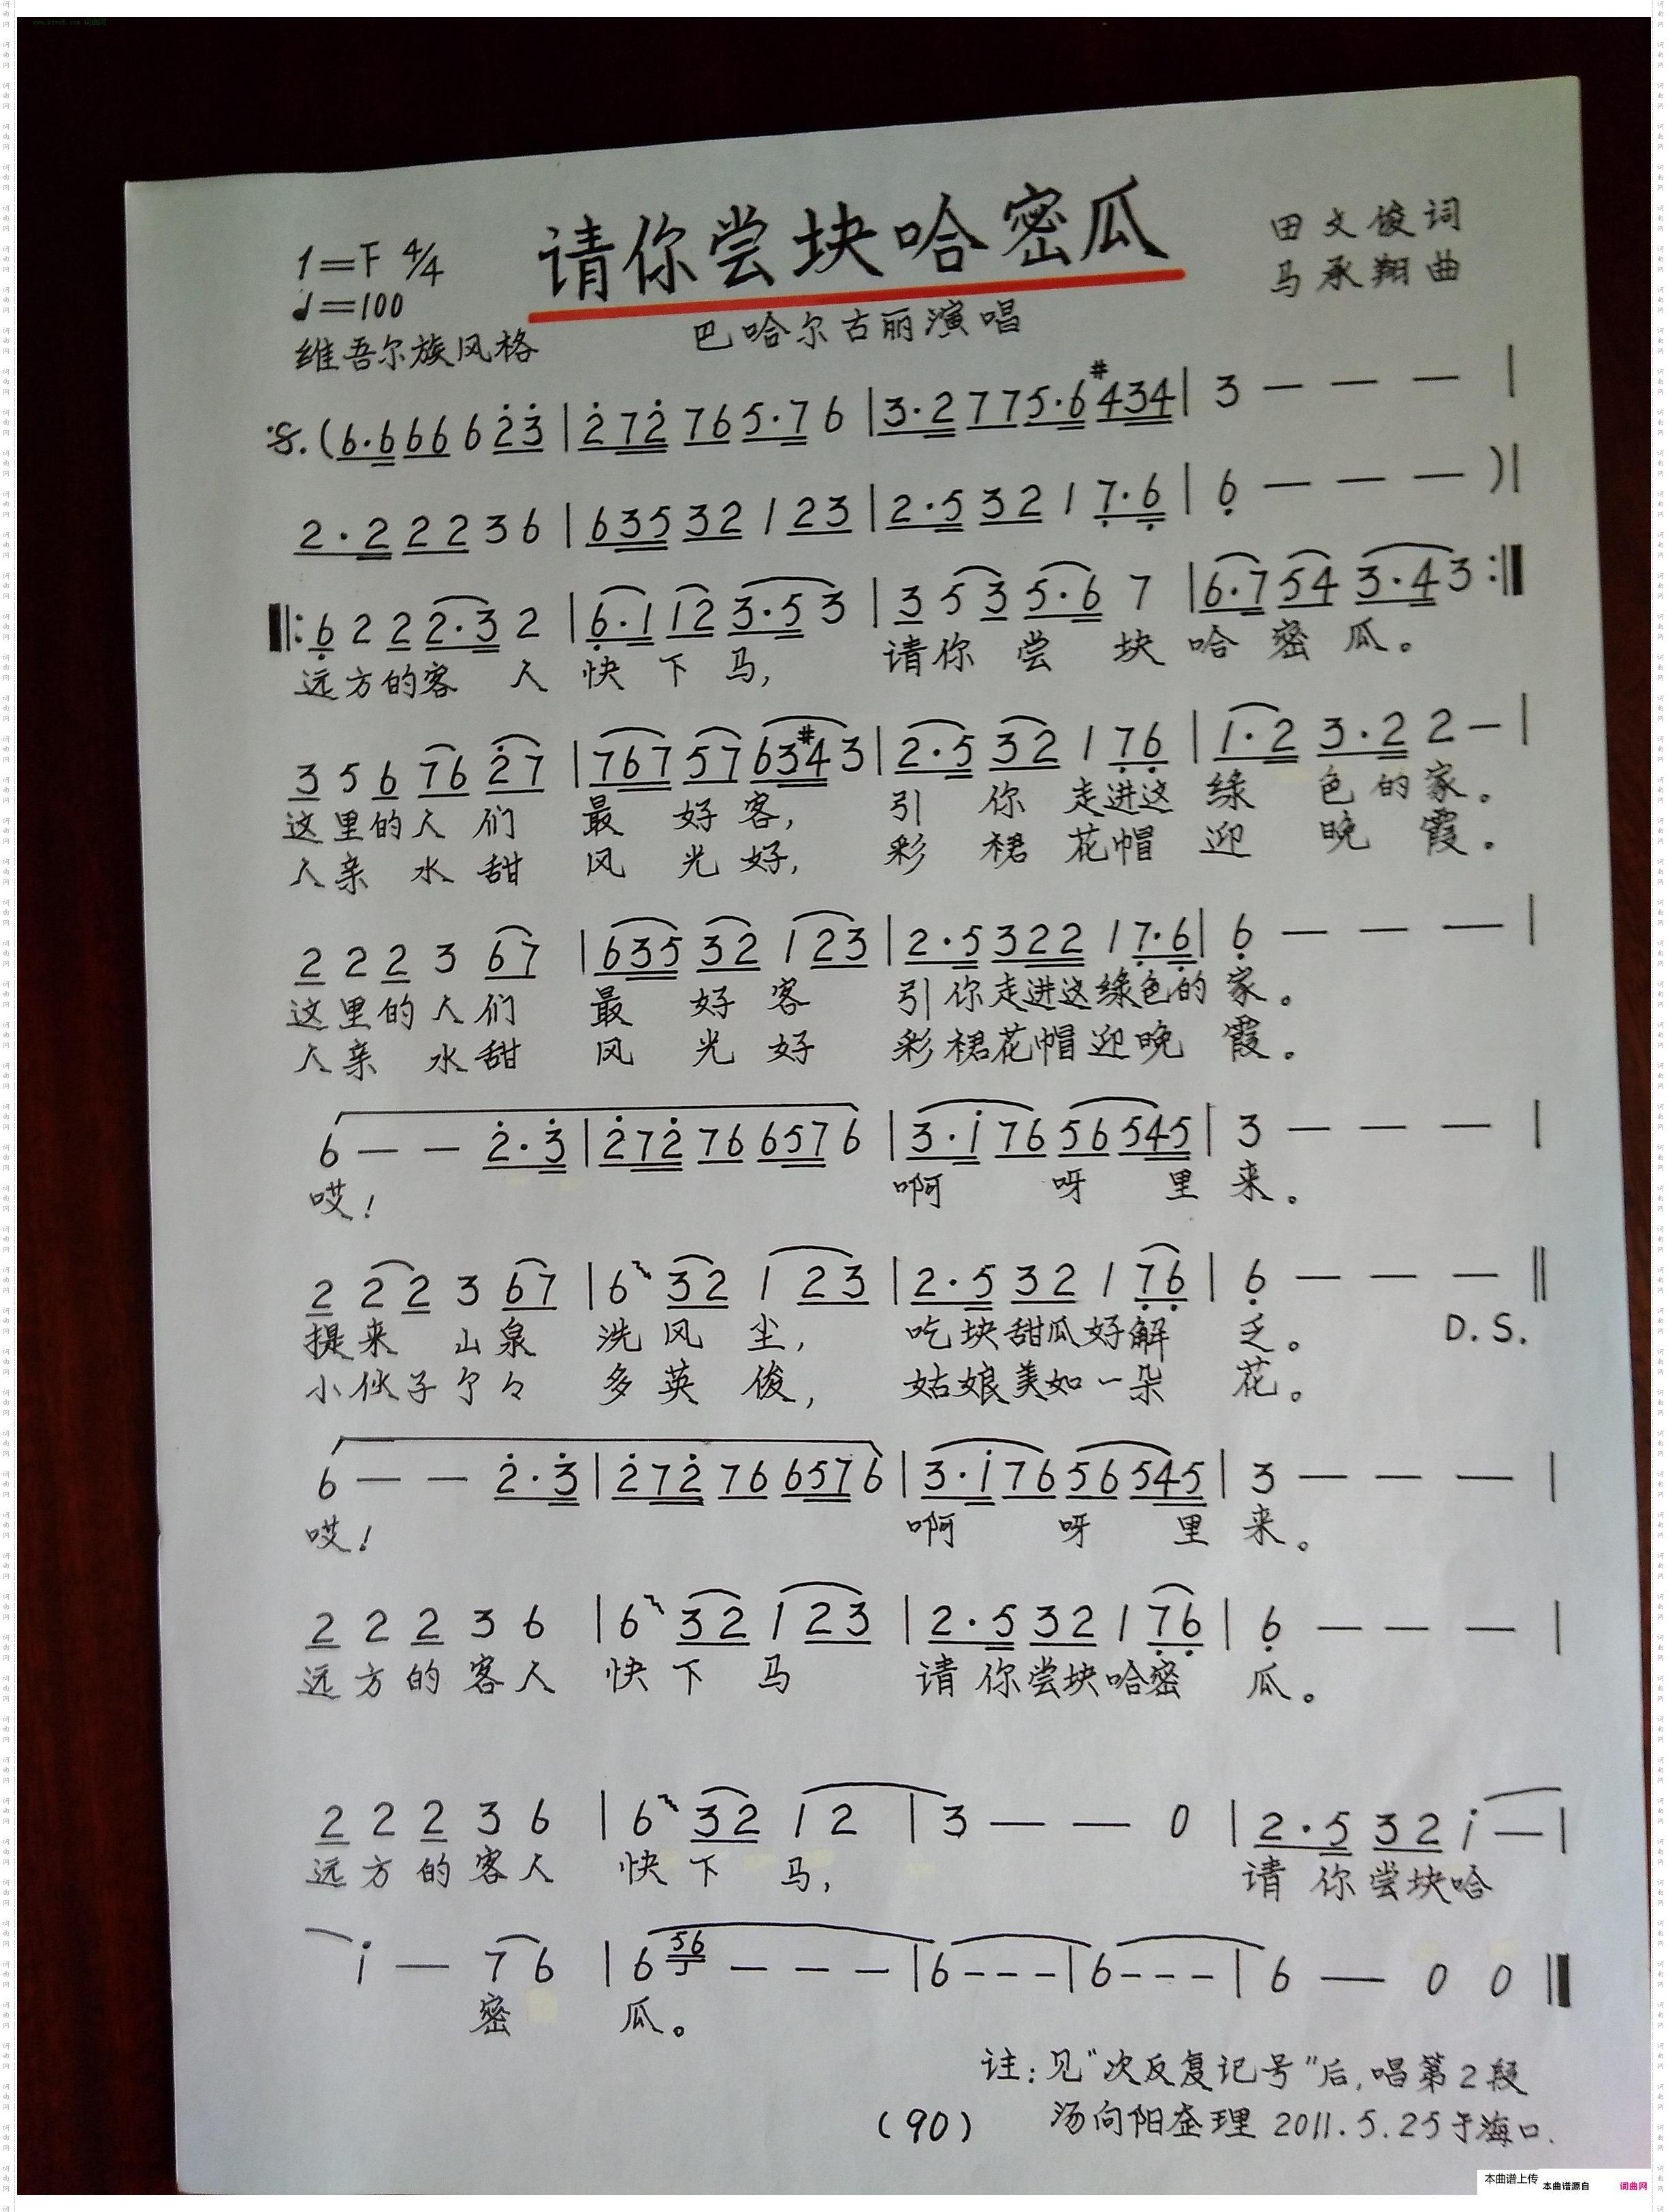 请你尝块哈密瓜
田文俊词
1=F 4/4
马承翔曲
♩=100
巴哈尔古丽演唱
维吾尔族风格
(6·6 66 6 2̇3̇ | 2̇72̇ 76 5·7 6 | 3·2 77 5·6 #434 | 3 — — — |
2·2 22 3 6 | 635 32 1 23 | 2·5 32 1 7̣·6̣ | 6̣ — — — ) |
‖: 6̣ 2 2 2·3 2 | 6̣·1 12 3·5 3 | 3 5 3 5·6 7 | 6·7 54 3·4 3 :‖
远方的客 人 快 下 马, 请你 尝 块 哈 密 瓜。
3 5 6 76 2̇7 | 767 57 63#4 3 | 2·5 32 1 7̣6̣ | 1·2 3·2 2 — |
这里的人 们 最 好 客, 引 你 走进这 绿 色 的 家。
人亲 水 甜 风 光 好, 彩 裙 花帽 迎 晚 霞。
2 2 2 3 67 | 635 32 1 23 | 2·5 322 1 7̣·6̣ | 6̣ — — — |
这里的人们 最 好 客 引你走进这绿色的 家。
人亲 水甜 风 光 好 彩裙花帽迎晚 霞。
6 — — 2̇·3̇ | 2̇72̇ 76 657 6 | 3·1̇ 76 56 545 | 3 — — — |
哎! 啊 呀 里 来。
2 2 2 3 67 | 6 32 1 23 | 2·5 32 1 7̣6̣ | 6̣ — — — ‖
提来 山泉 洗 风 尘, 吃块甜瓜好解 乏。 D.S.
小伙子个々 多 英 俊, 姑娘美如一朵 花。
6 — — 2̇·3̇ | 2̇72̇ 76 657 6 | 3·1̇ 76 56 545 | 3 — — — |
哎! 啊 呀 里 来。
2 2 2 3 6 | 6 32 1 23 | 2·5 32 1 7̣6̣ | 6̣ — — — |
远方的 客人 快 下 马 请 你尝块哈密 瓜。
2 2 2 3 6 | 6 32 1 2 | 3 — — 0 | 2·5 32 1̇ — |
远方的客人 快 下 马, 请 你尝块哈
1̇ — 7 6 | 6 56 — — — | 6 - - - | 6 - - - | 6 — 0 0 ‖
密 瓜。
注:见"次反复记号"后,唱第2段
(90) 汤向阳整理 2011.5.25于海口.
本曲谱上传
本曲谱源自 词曲网